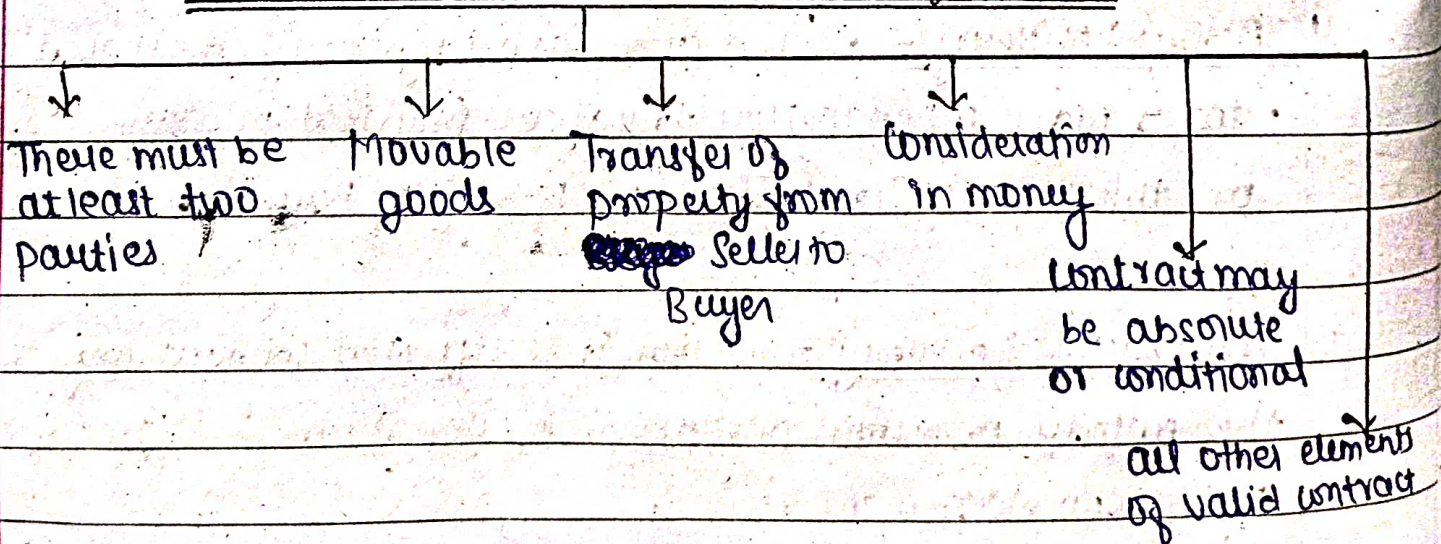 There must be
atleast two
parties
Movable
goods
Transfer of
property from
Seller to
Buyer
Consideration
in money
Contract may
be absolute
or conditional
all other elements
of valid contract